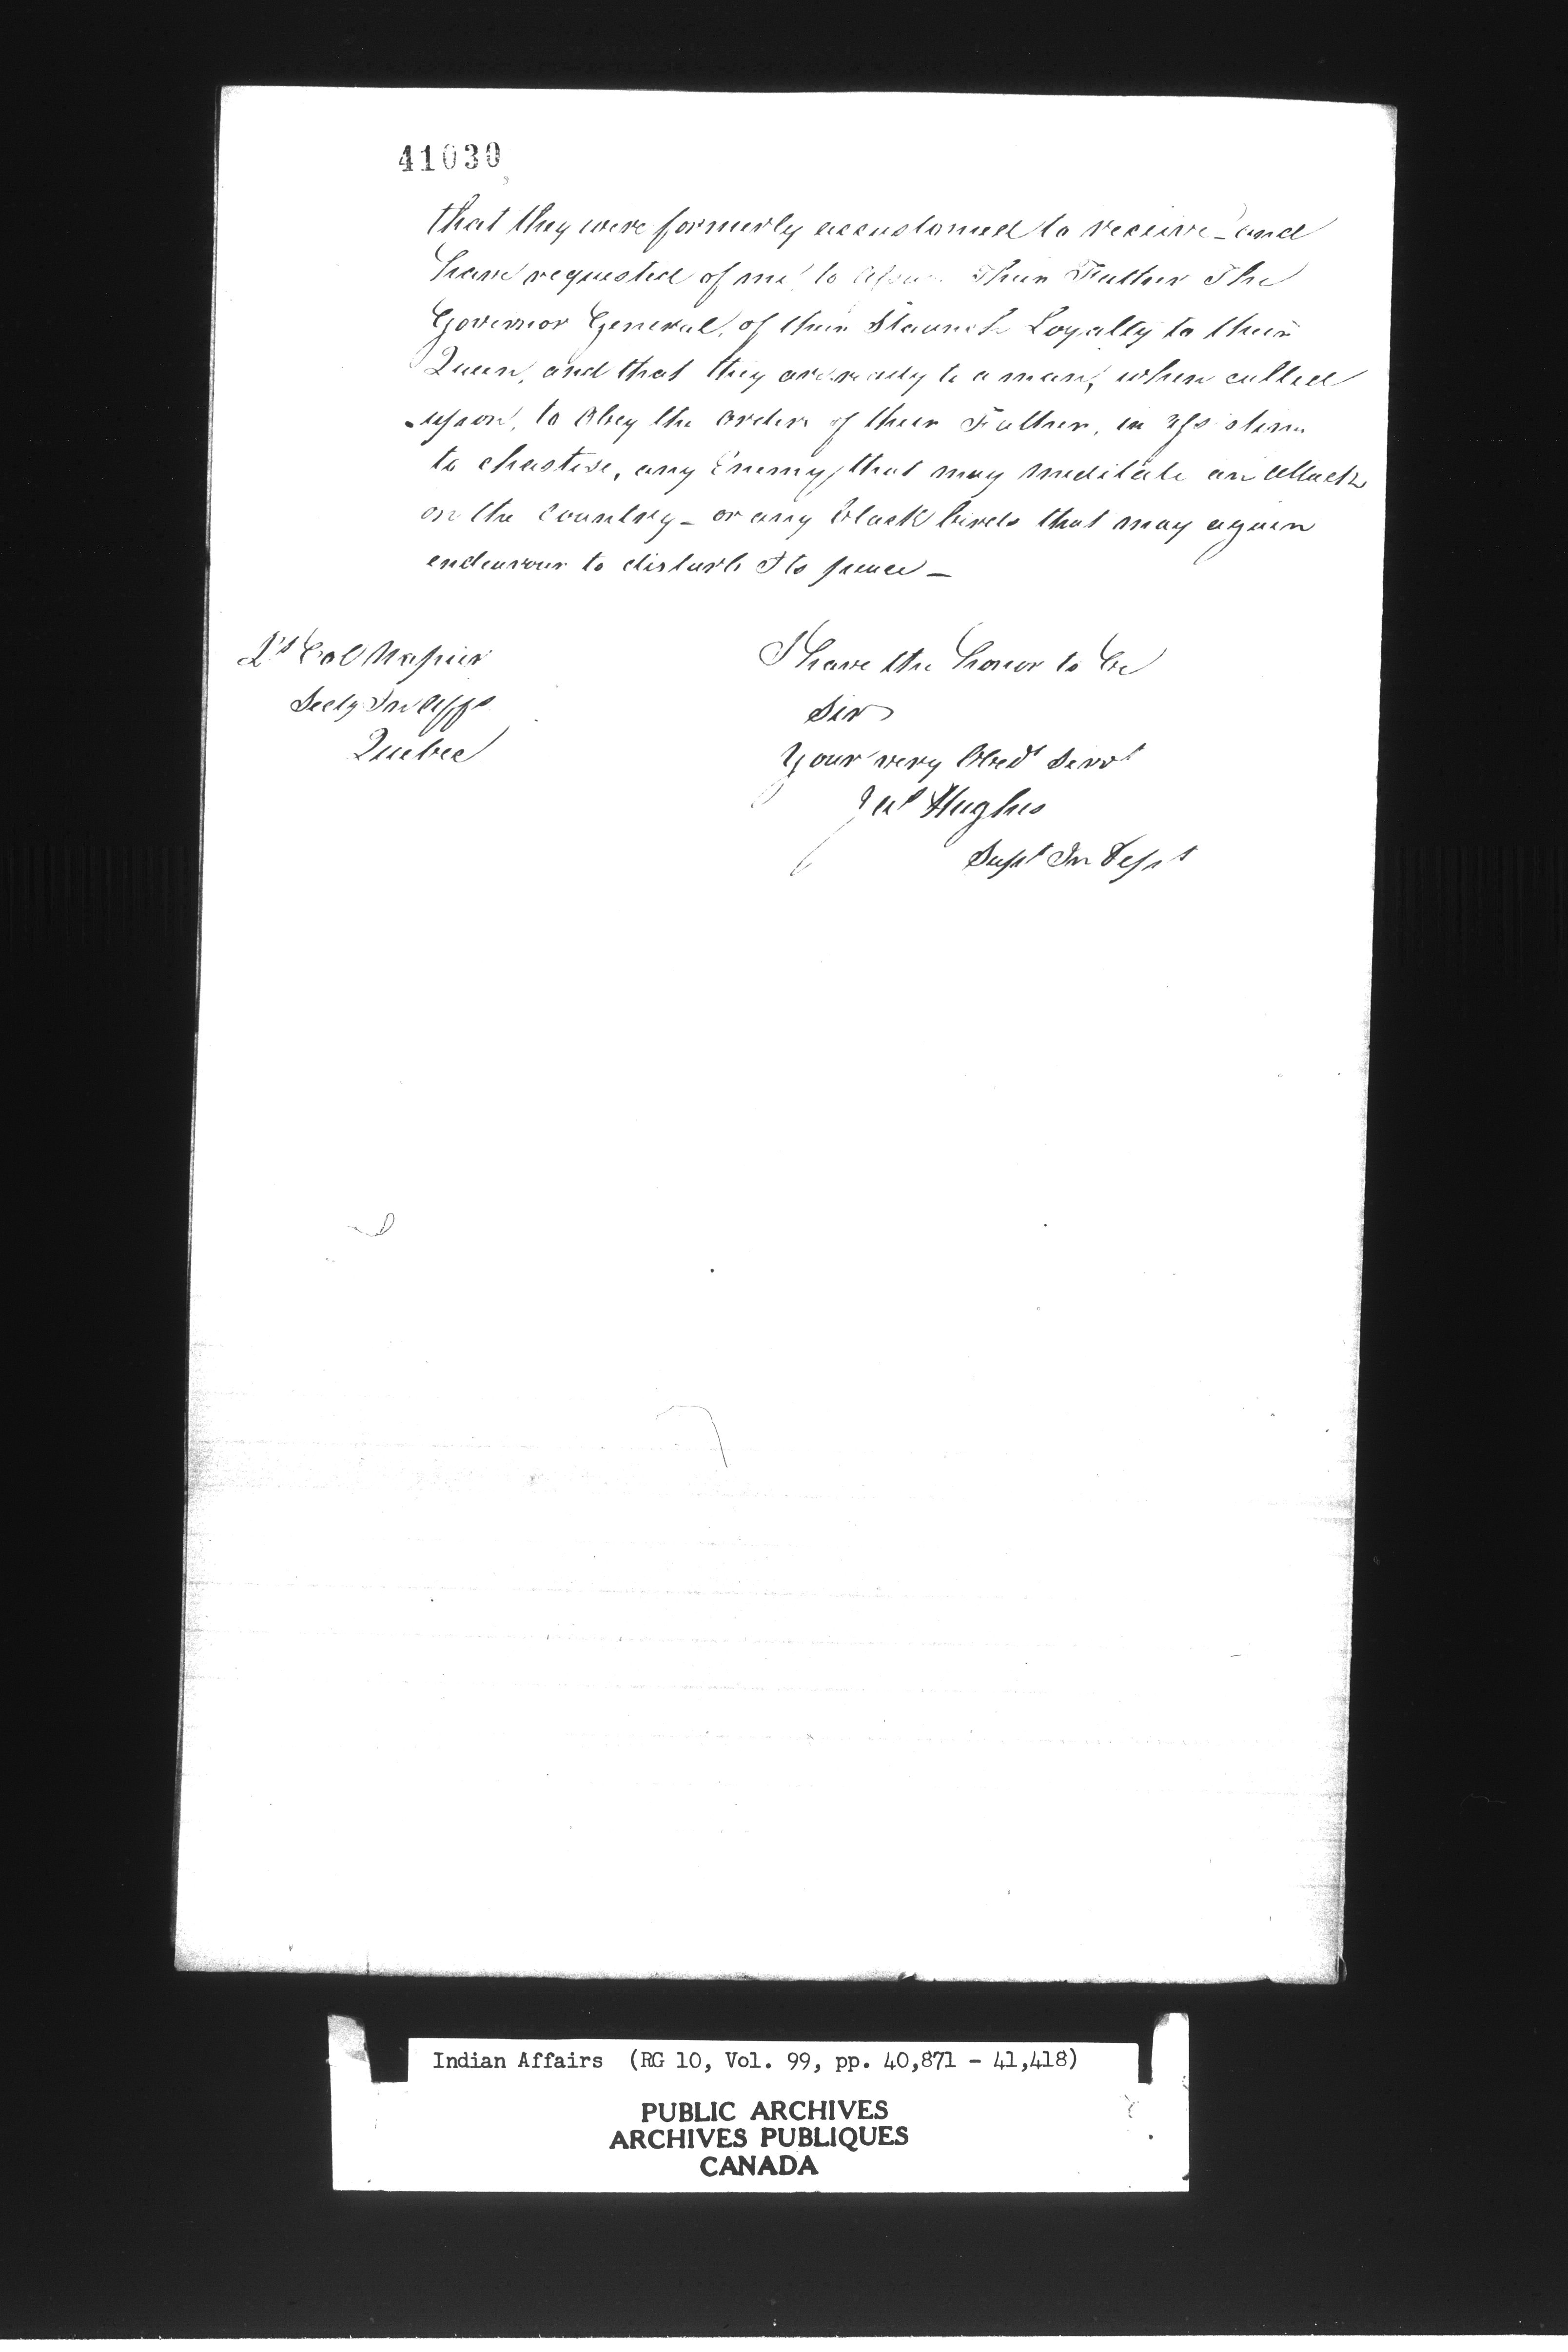 41030
that they were formerly accustomed to receive - and
have requested of me, to Their Father The
Governor General, of their Staunch Loyalty to their
Queen, and that they are ready to a man, when called
upon, to Obey the order of their Father, in
to chastise, any Enemy, that may meditate an attack
on the Country - or any black birds that may again
endeavour to disturb Its peace -
Lt Col Napier
Secty In Affs
Quebec
I have the honor to be
Sir
Your very Obedt Servt
Jas Hughes
Supt In Dept
Indian Affairs (RG 10, Vol. 99, pp. 40,871 - 41,418)
PUBLIC ARCHIVES
ARCHIVES PUBLIQUES
CANADA